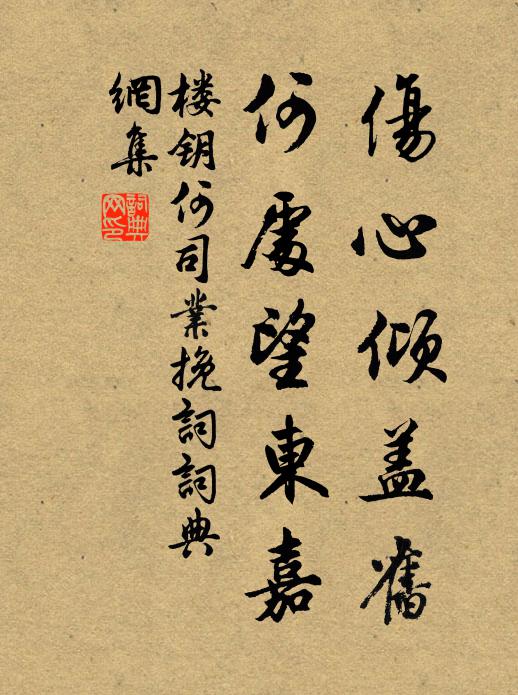 傷心傾盖舊
何處望東嘉
楼钥何司業挽詞詞典
網集
詞典网印